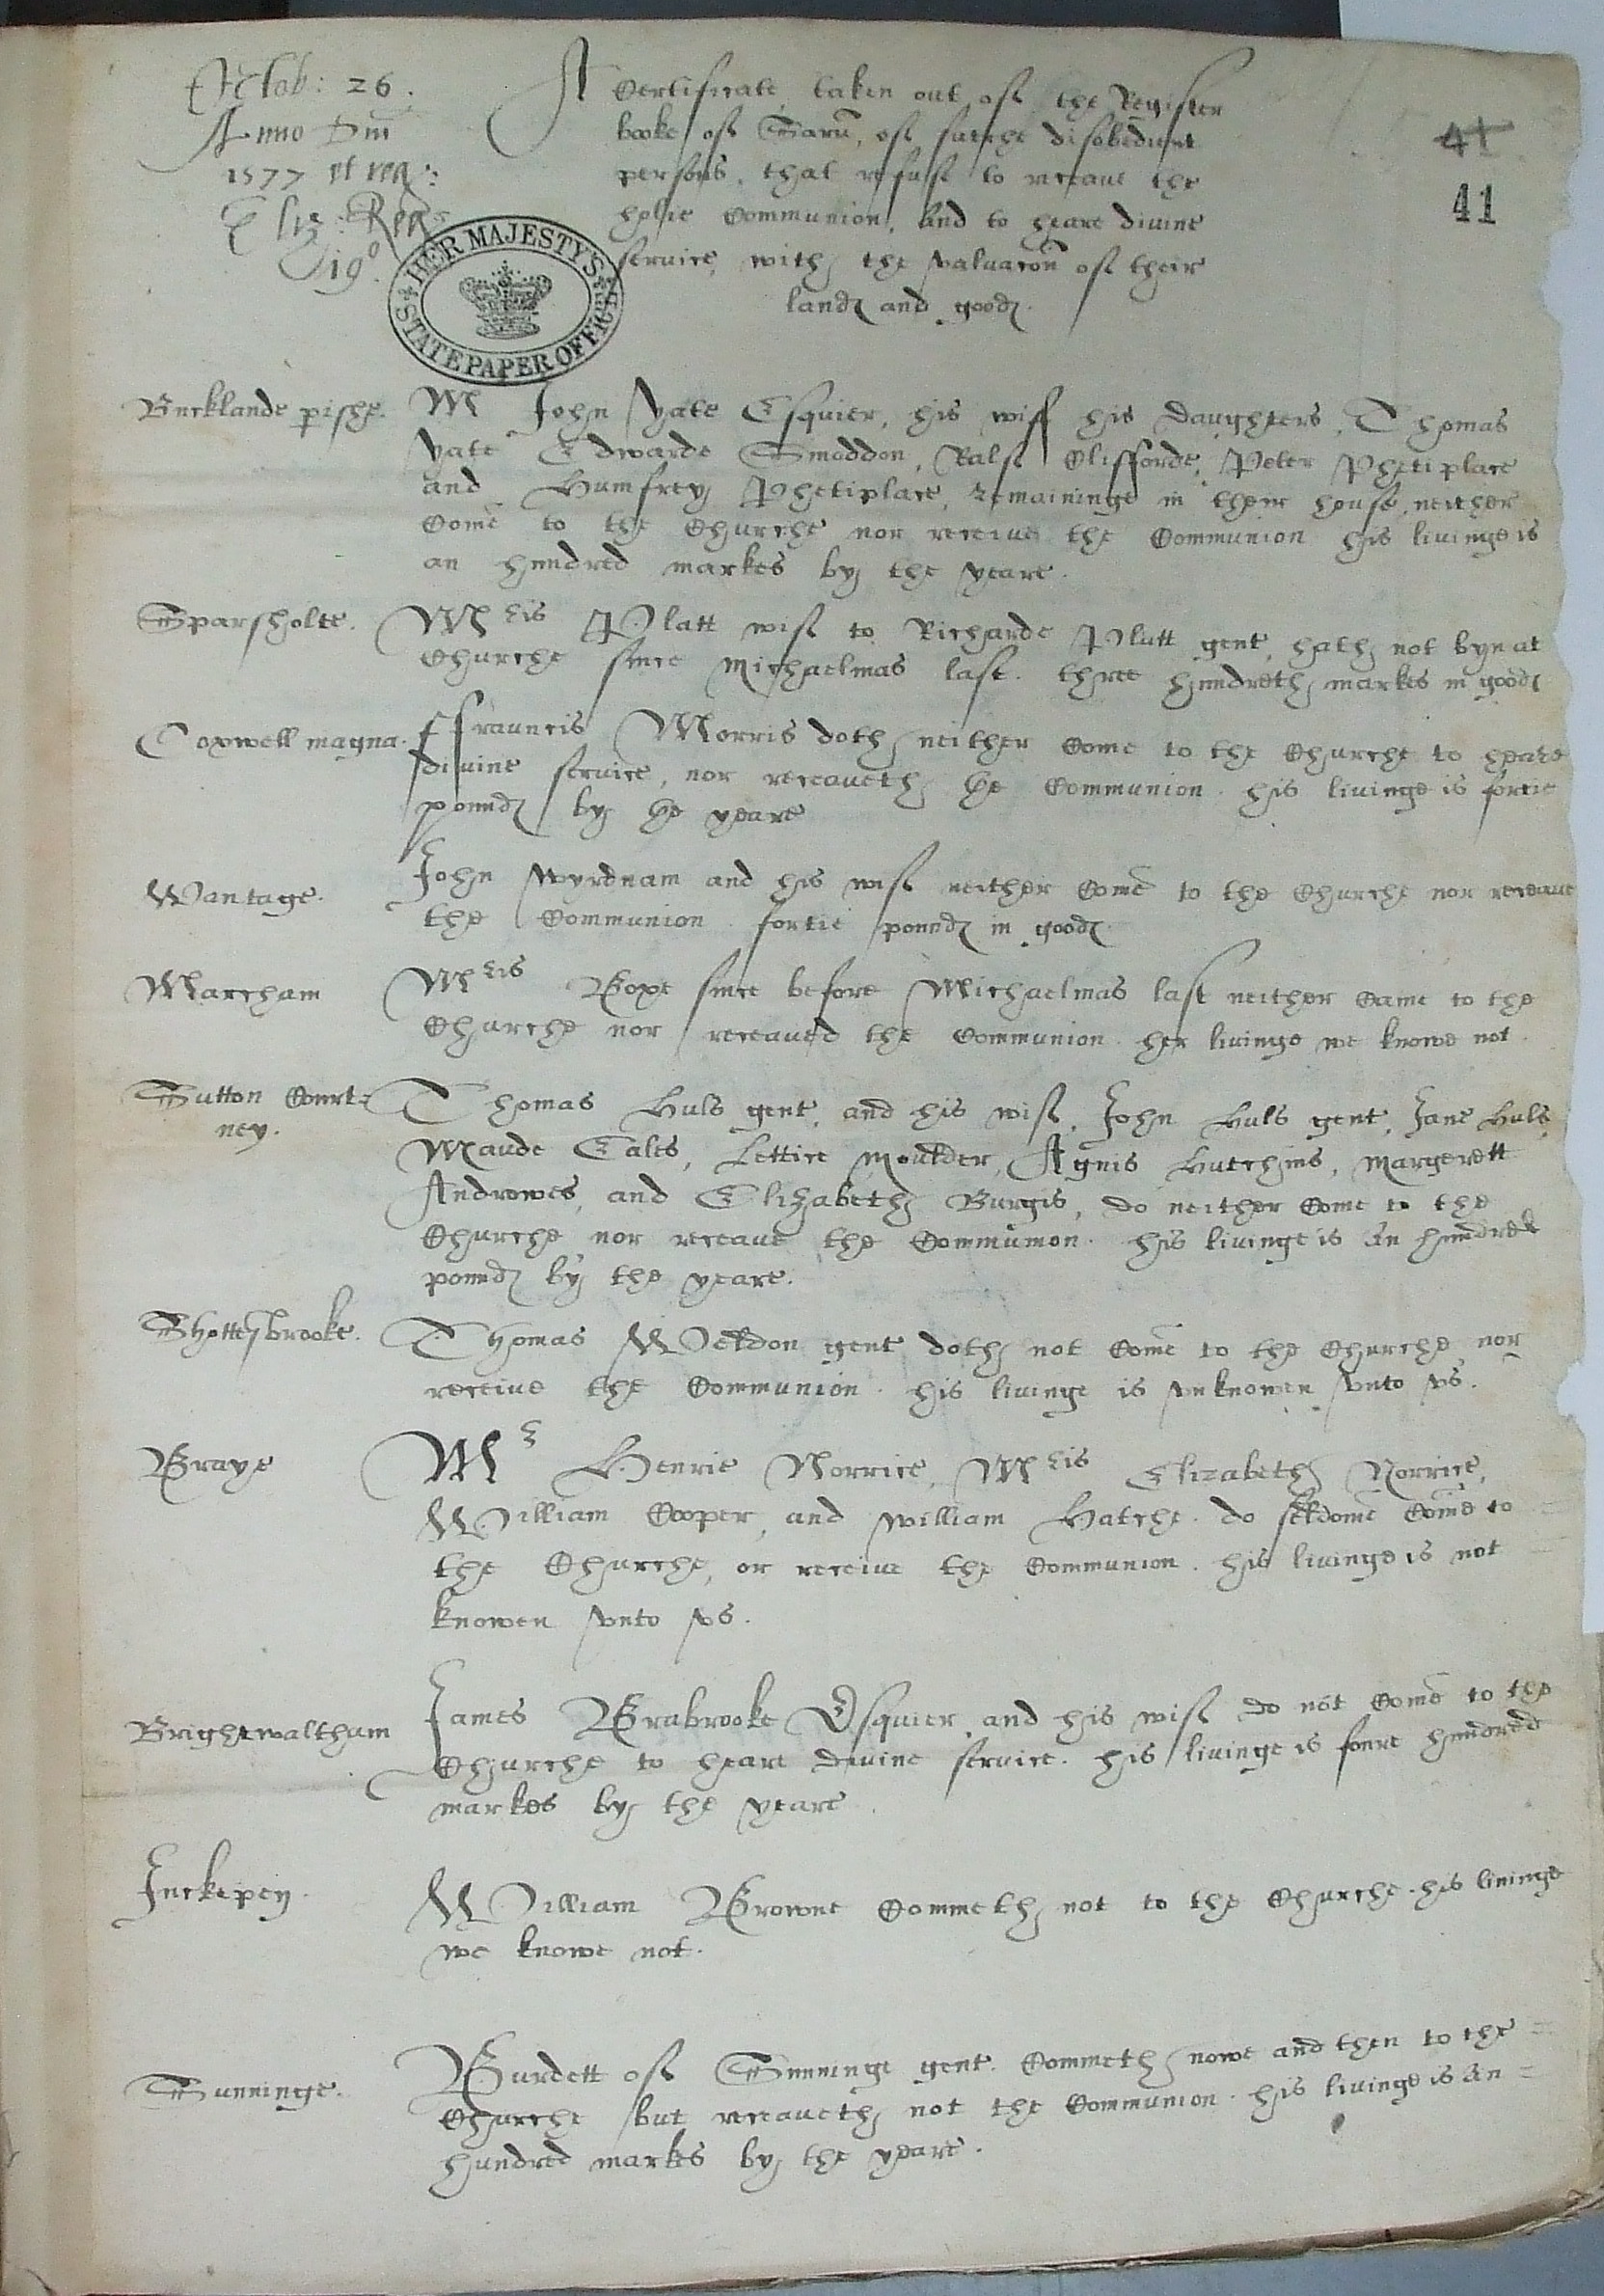 Octob: 26.
Anno Dni
1577 et reg:
Eliz: Reg:
19°.
A Certificate taken out of the Register
booke of Sarũ, of sutche disobedient
persons, that refuse to receaue the
holie Communion, and to heare divine
service, with the valuacõn of their
landȩ and goodȩ.
41
41
HER MAJESTY'S
STATE PAPER OFFICE
Bucklande pishe.
Mr John Yate Esquier, his wife his daughters, Thomas
Yate Edwarde Smoddon, Ralfe Clifforde, Peter Phetiplace
and Humfrey Phetiplace, remaininge in their house, neither
Come to the Churche nor receive the Communion his livinge is
an hundred markes by the yeare.
Sparsholte.
Mris Platt wife to Richarde Platt gent, hath not byn at
Churche since Michaelmas last. three hundreth markes in goodȩ
Coxwell magna.
Frauncis Morris doth neither Come to the Churche to heare
divine service, nor receaueth the Communion. his livinge is fortie
poundȩ by the yeare
Wantage.
John Wyrdnam and his wife neither Come to the Churche nor receaue
the Communion. fortie poundȩ in goodȩ
Marcham
Mris Boxe since before Michaelmas last neither Came to the
Churche nor receaued the Communion. her livinge we knowe not.
Sutton Court=
ney.
Thomas Huls gent, and his wife, John Huls gent, Jane Huls,
Maude Eales, Lettice Moulder, Agnis Hutchins, Margerett
Andrewes, and Elizabeth Burgis, do neither Come to the
Churche, nor receaue the Communion. his livinge is An hundred
poundȩ by the yeare.
Shottesbrooke.
Thomas Weldon gent doth not Come to the Churche nor
receive the Communion. his livinge is vnknowen vnto vs.
Braye
Mr Henrie Norrice, Mris Elizabeth Norrice,
William Cooper, and William Hatche. do seldome Come to =
the Churche, or receive the Communion. his livinge is not
knowen vnto vs.
Brightwaltham
James Brabrooke Esquier and his wife do not Come to the
Churche to heare devine service. his livinge is foure hundred
markes by the yeare.
Inckepen.
William Browne Commeth not to the Churche. his livinge
we knowe not.
Sunninge.
Burdett of Sunninge gent. Commeth nowe and then to the =
Churche but receaueth not the Communion. his livinge is An =
hundred markes by the yeare.